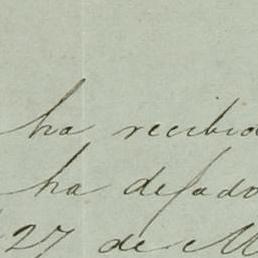 ha recibid
ha dejado
27 de M